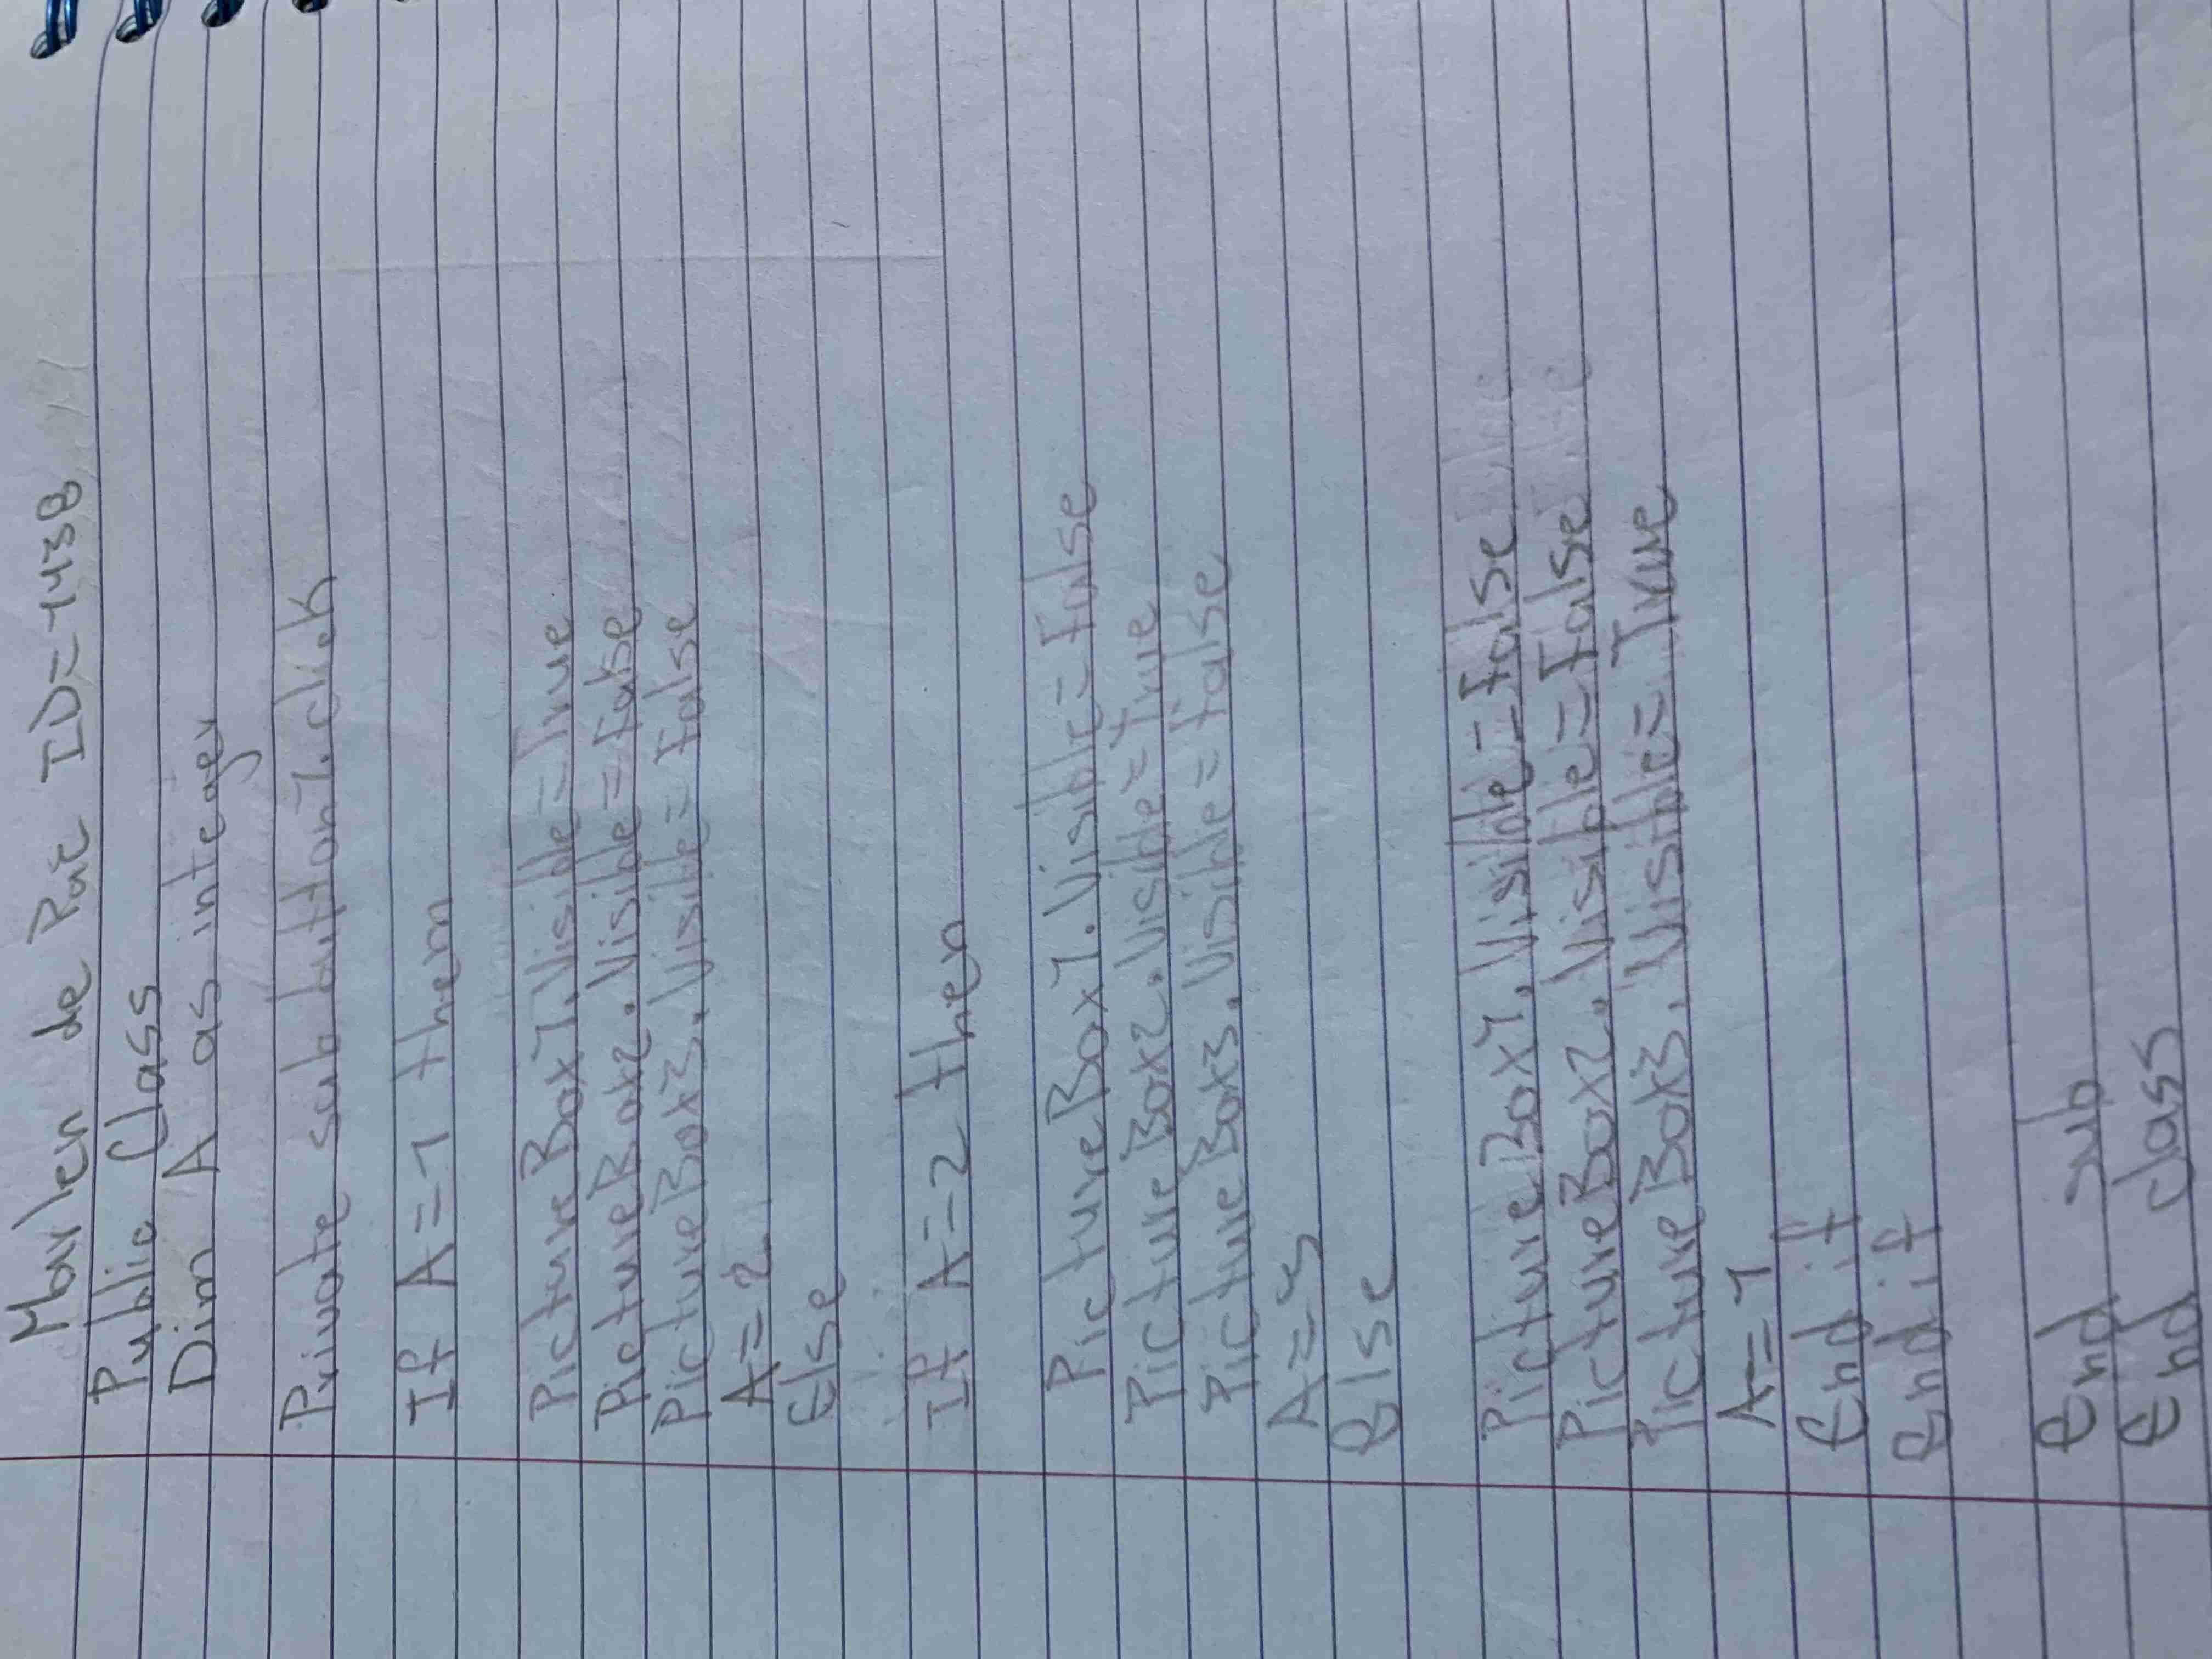 Marlen de Paz ID=1438
Public Class
Dim A as integer
Private sub buttan1.click
If A=1 them
PictureBox1.Visible=True
PictureBox2.Visible=False
PictureBox3.Visible=False
A=2
Else
If A=2 then
PictureBox1.Visible=False
PictureBox2.Visible=True
PictureBox3.Visible=False
A=3
Else
PictureBox1.Visible=False
PictureBox2.Visible=False
PictureBox3.Visible=True
A=1
End if
End if
End sub
End class